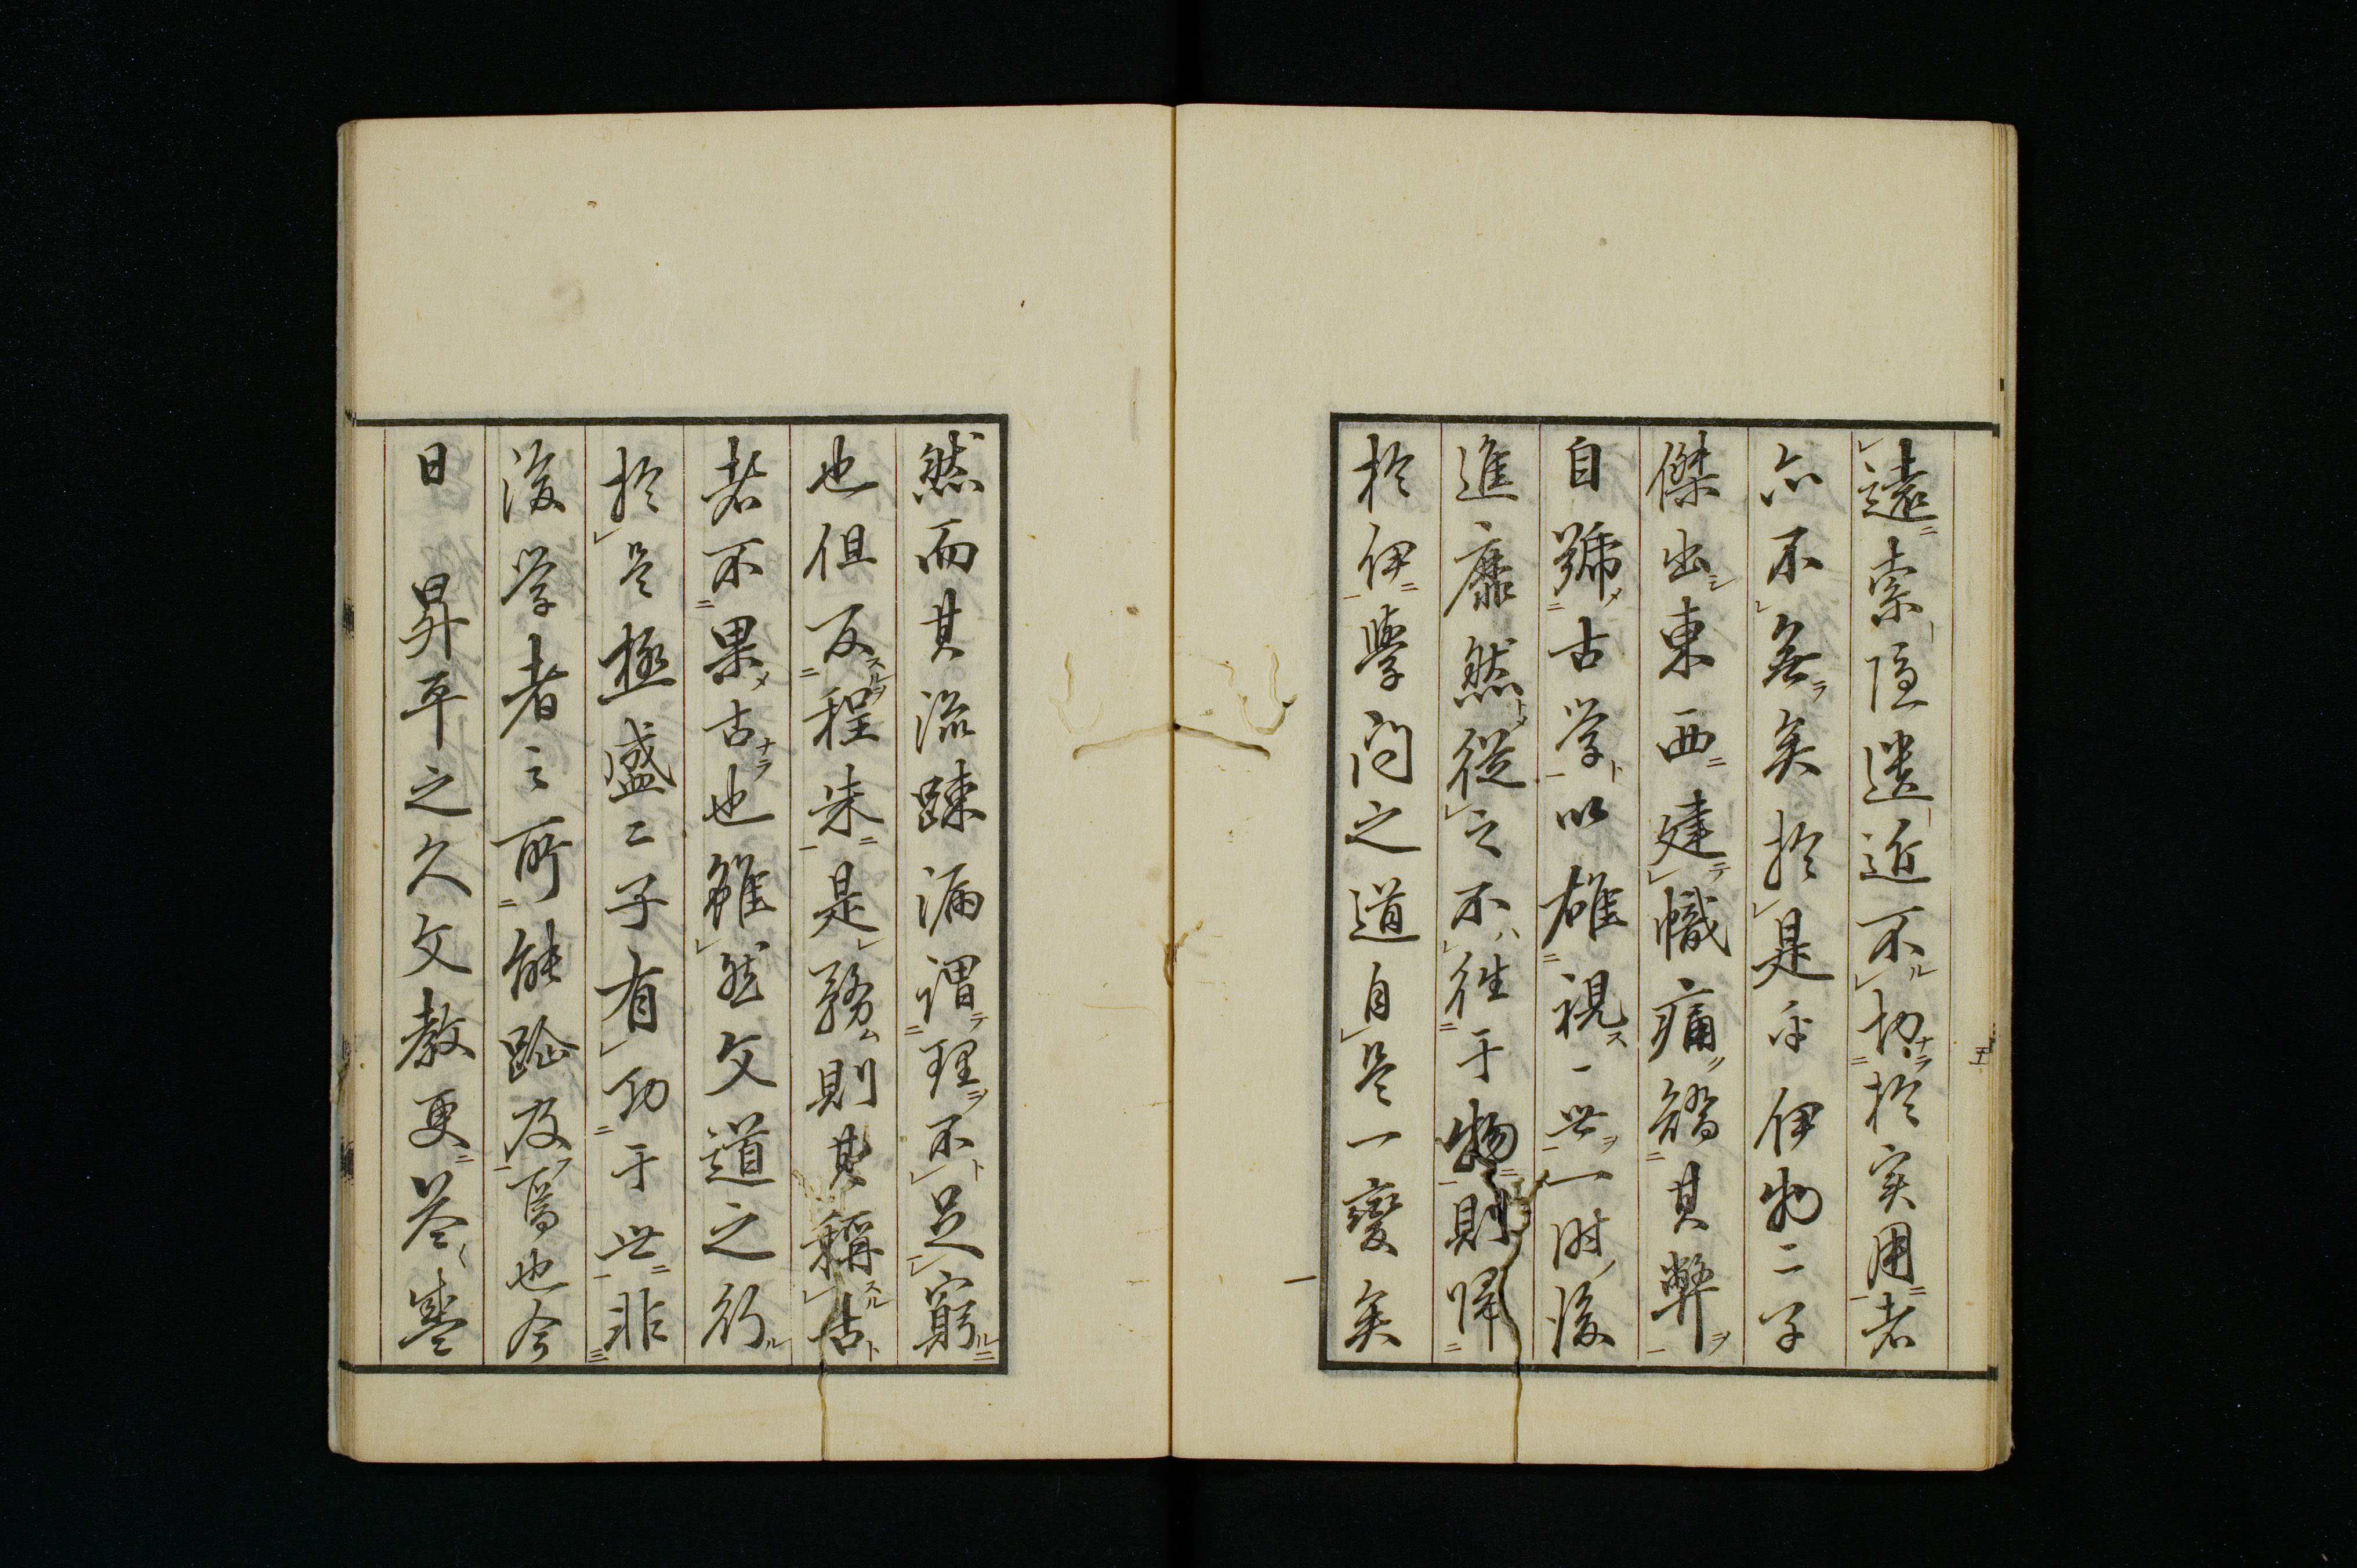 遠索隱遺近不切於実用者
亦不無矣於是乎伊物二子
傑出東西建幟痛矯其弊
自號古学以雄視一世一時後
進靡然従之不往于物則帰
於伊學问之道自是一變矣
然而其流踈漏謂理不足窮
也但反程朱是務則其稱古
者不果古也雖然文道之行
於是極盛二子有功于世非
後学者之所能跂及焉也今
日昇平之久文教更益